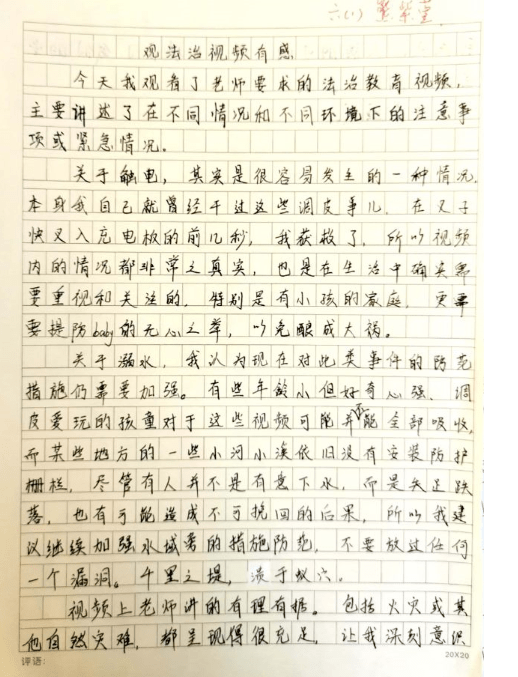 六(1)
观法治视频有感
今天我观看了老师要求的法治教育视频，
主要讲述了在不同情况和不同环境下的注意事
项或紧急情况。
关于触电，其实是很容易发生的一种情况，
本身我自己就曾经干过这些调皮事儿。在叉子
快叉入充电板的前几秒，我获救了，所以视频
内的情况都非常之真实，也是在生活中确实需
要重视和关注的，特别是有小孩的家庭，更需
要提防baby的无心之举，以免酿成大祸。
关于溺水，我认为现在对此类事件的防范
措施仍需要加强。有些年龄小但好奇心强、调
皮爱玩的孩童对于这些视频可能并不能全部吸收，
而某些地方的一些小河小溪依旧没有安装防护
栅栏，尽管有人并不是有意下水，而是失足跌
落，也有可能造成不可挽回的后果，所以我建
议继续加强水域旁的措施防范，不要放过任何
一个漏洞。千里之堤，溃于蚁穴。
视频上老师讲的有理有据。包括火灾或其
他自然灾难，都呈现得很充足，让我深刻意识
评语：
20×20